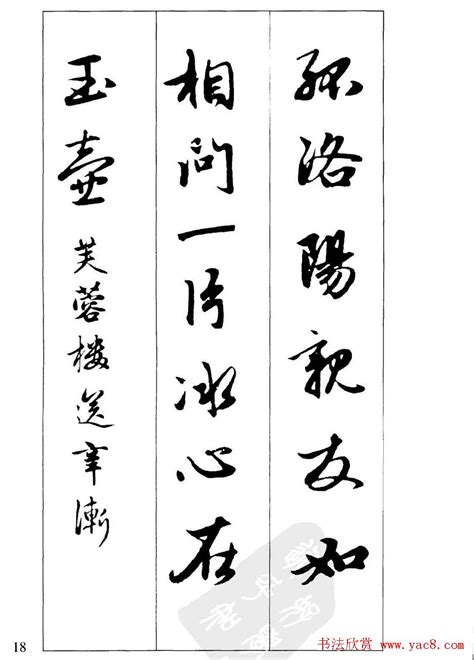 孤洛陽親友如
相問一片冰心在
玉壺 芙蓉樓送辛漸
18
书法欣赏 www.yac8.com